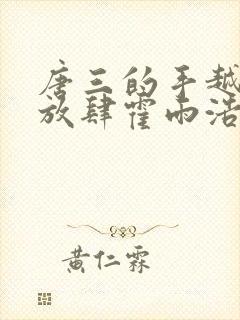 唐三的手越
放肆霍雨浩
黄仁霖